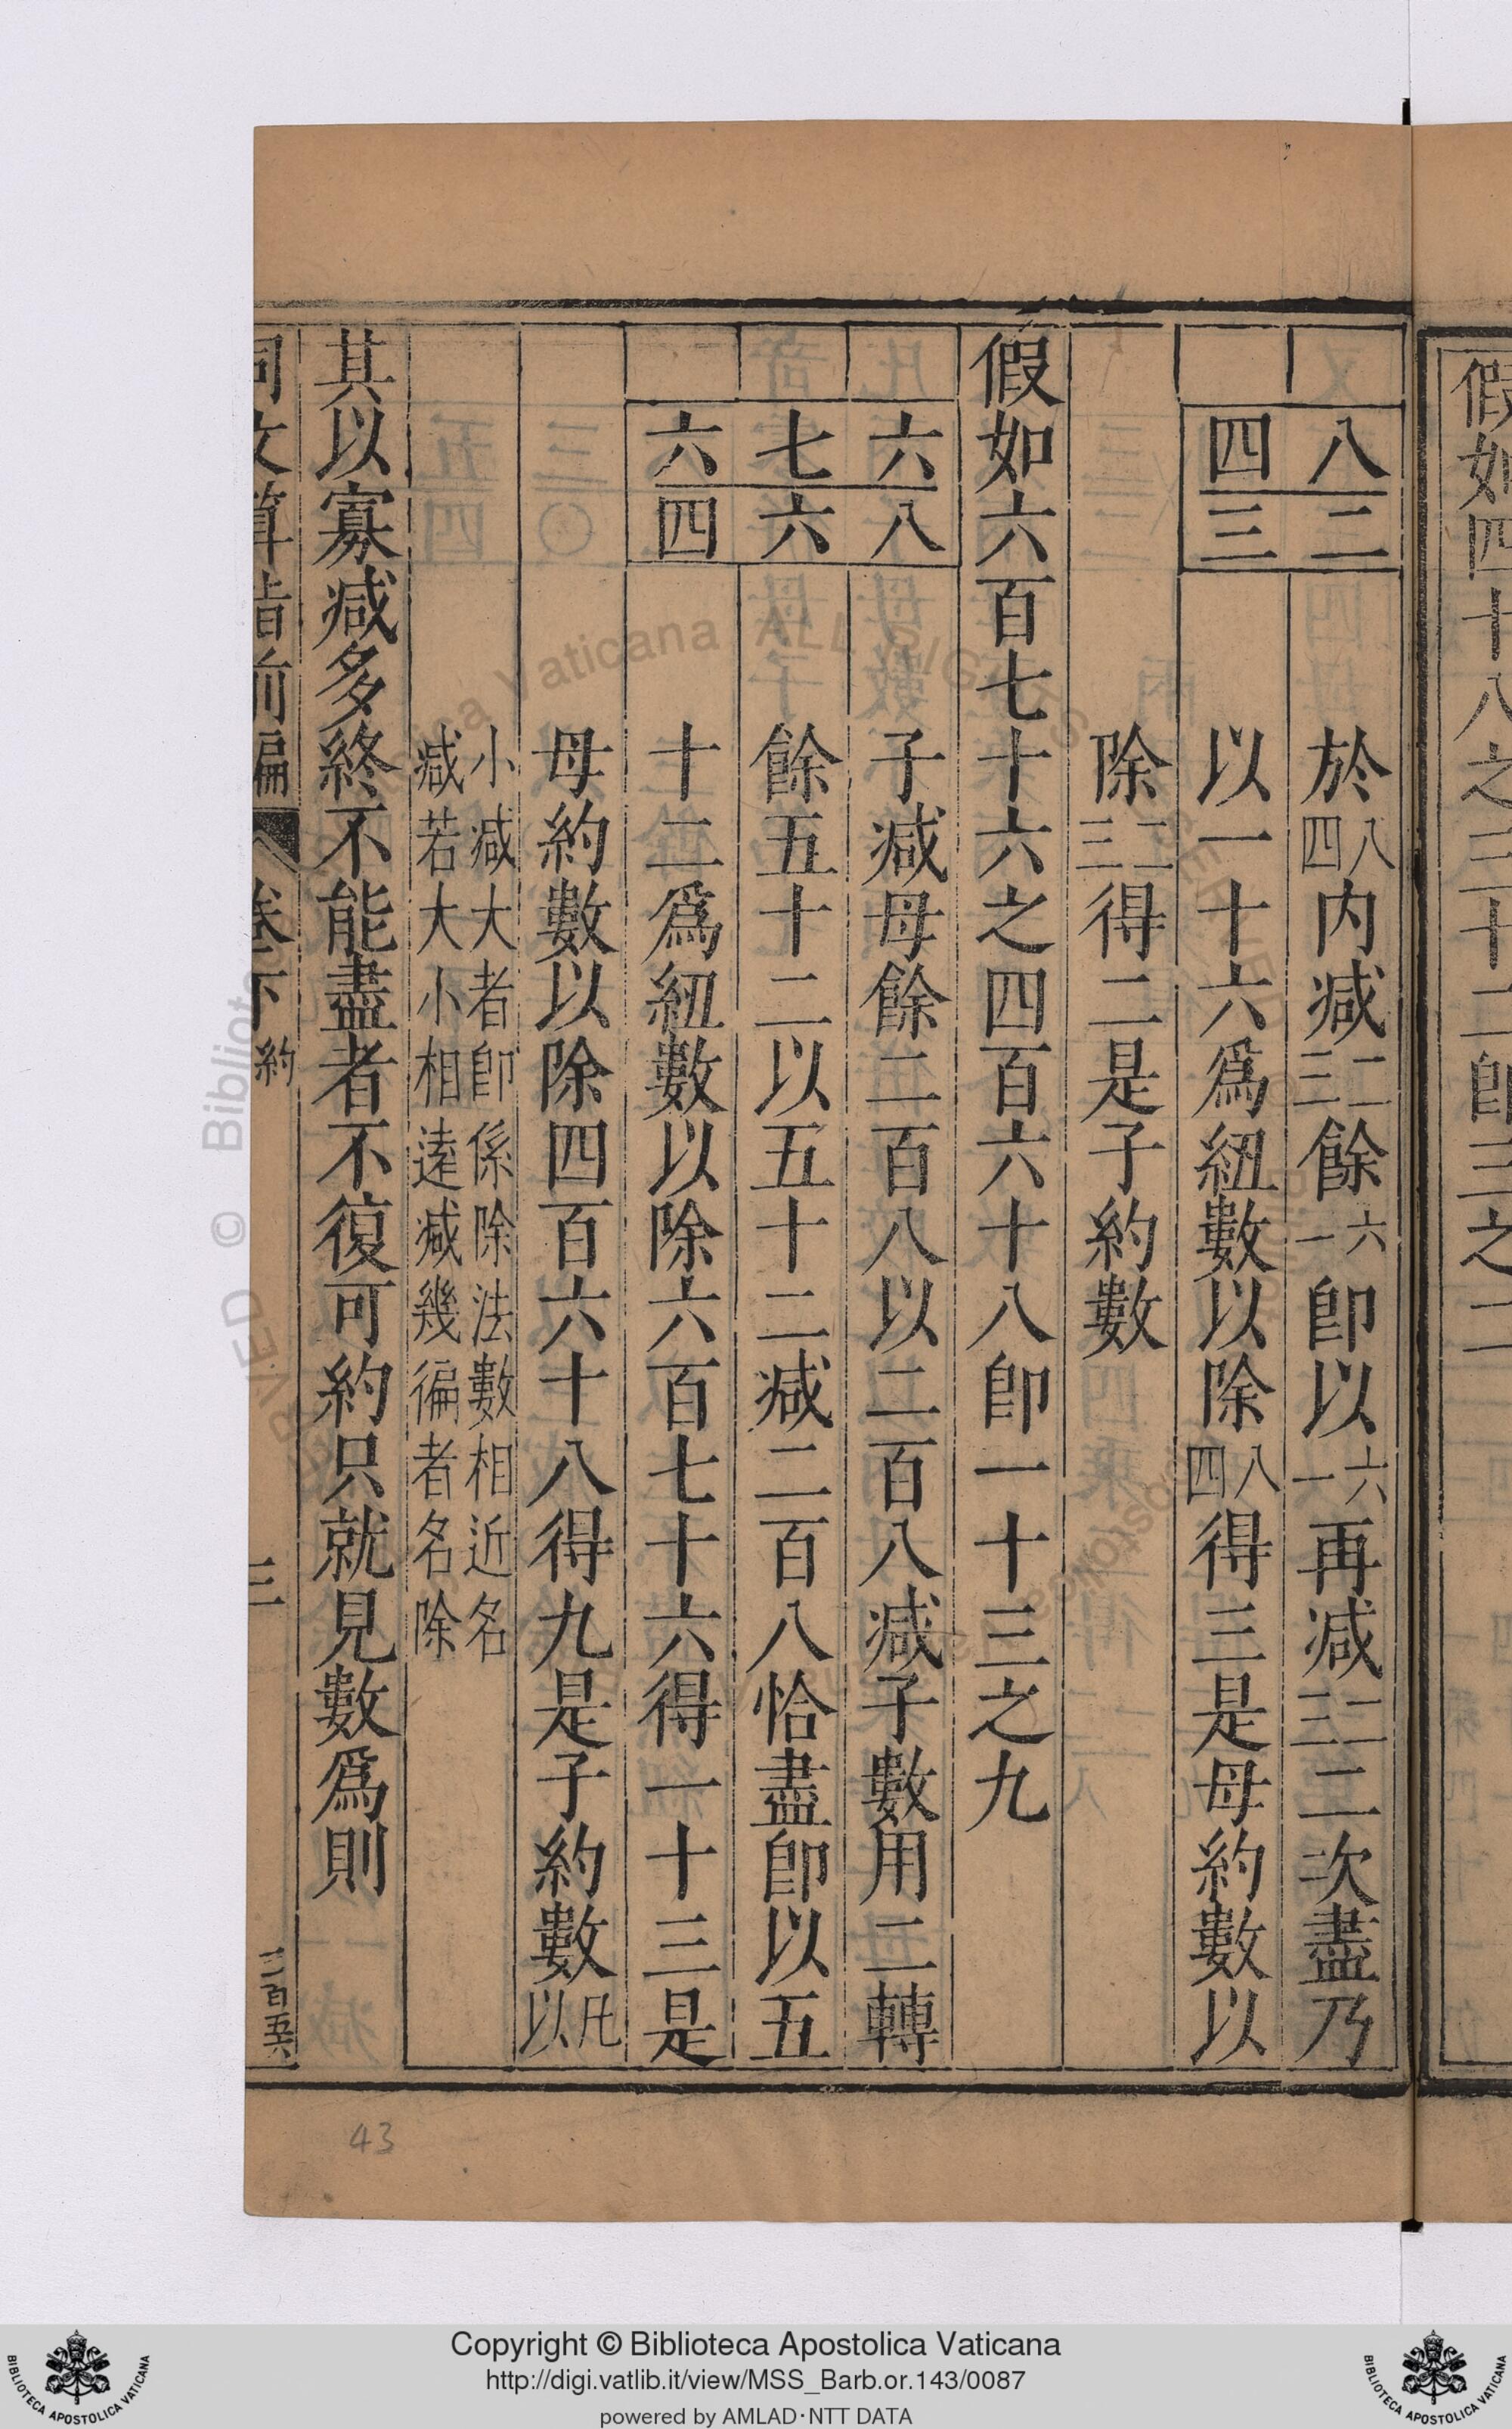 假如四十八之三十二卽三之二
八二 於四八内减三二餘一六卽以一六再减三二二次盡乃
四三 以一十六爲紐數以除四八得三是母約數以
除三二得二是子約數
假如六百七十六之四百六十八卽一十三之九
六八 子减母餘二百八以二百八减子數用二轉
七六 餘五十二以五十二减二百八恰盡卽以五
六四 十二爲紐數以除六百七十六得一十三是
母約數以除四百六十八得九是子約數凡以
小减大者卽係除法數相近名
减若大小相遠减幾徧者名除
其以寡减多終不能盡者不復可約只就見數爲則
同文算指前編 卷下 約 三
43
Copyright © Biblioteca Apostolica Vaticana
http://digi.vatlib.it/view/MSS_Barb.or.143/0087
powered by AMLAD·NTT DATA
BIBLIOTECA APOSTOLICA VATICANA
BIBLIOTECA APOSTOLICA VATICANA